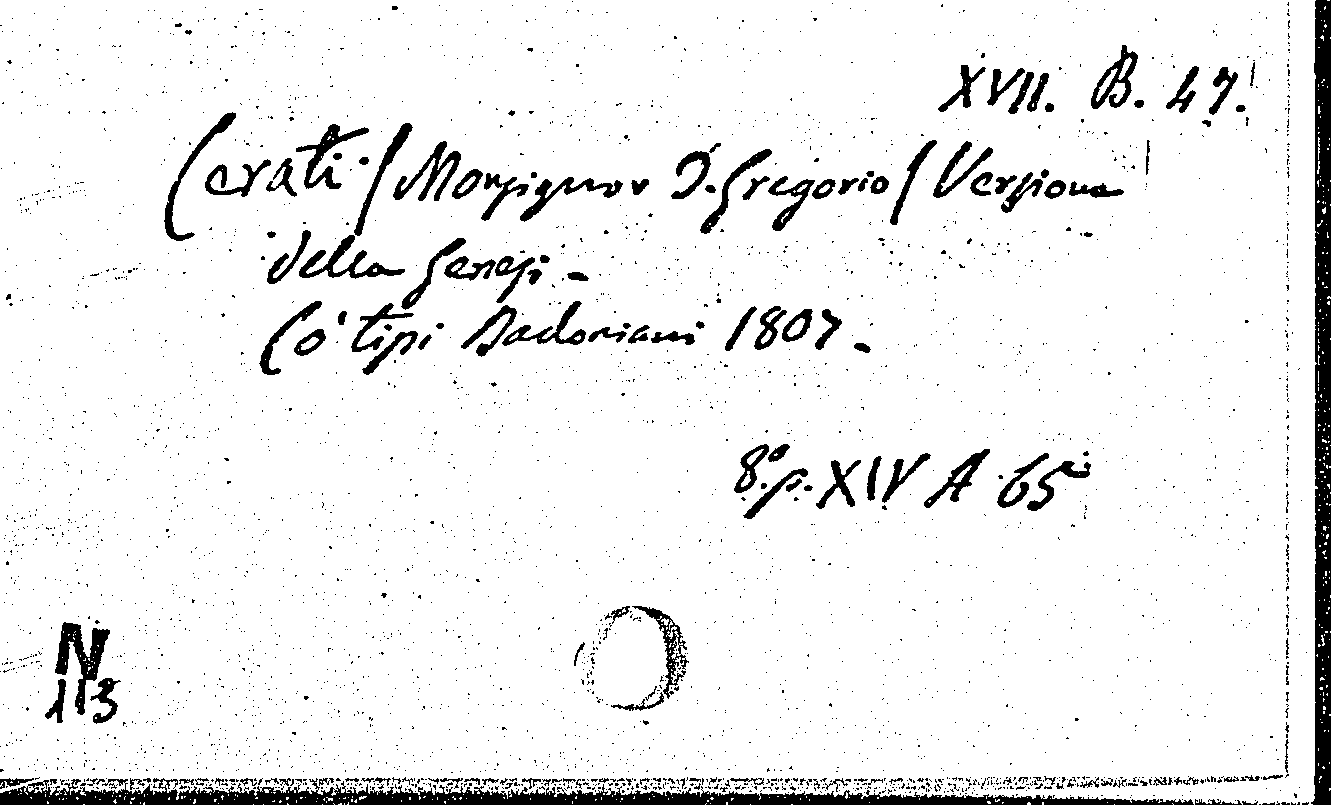 XVII. B. 47.
Cerati / Monsignor D. Gregorio / Versione
della Genesi -
Co' tipi Bodoniani 1807. -
8.º p. XIV A 65
N
113